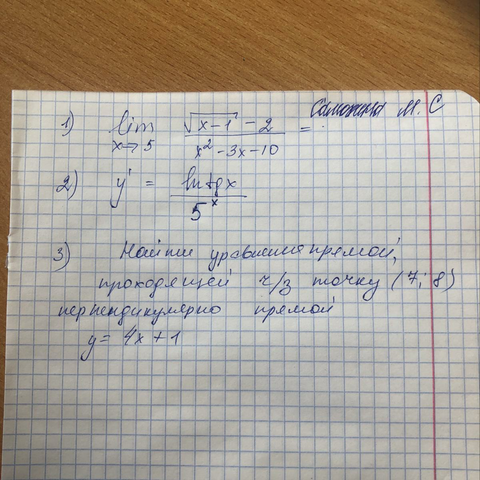 М. С
1) lim x→5 (√(x-1) - 2)/(x² - 3x - 10) =
2) y' = ln tg x / 5ˣ
3) Найти уравнение прямой,
проходящей ч/з точку (7; 8)
перпендикулярно прямой
y = 4x + 1